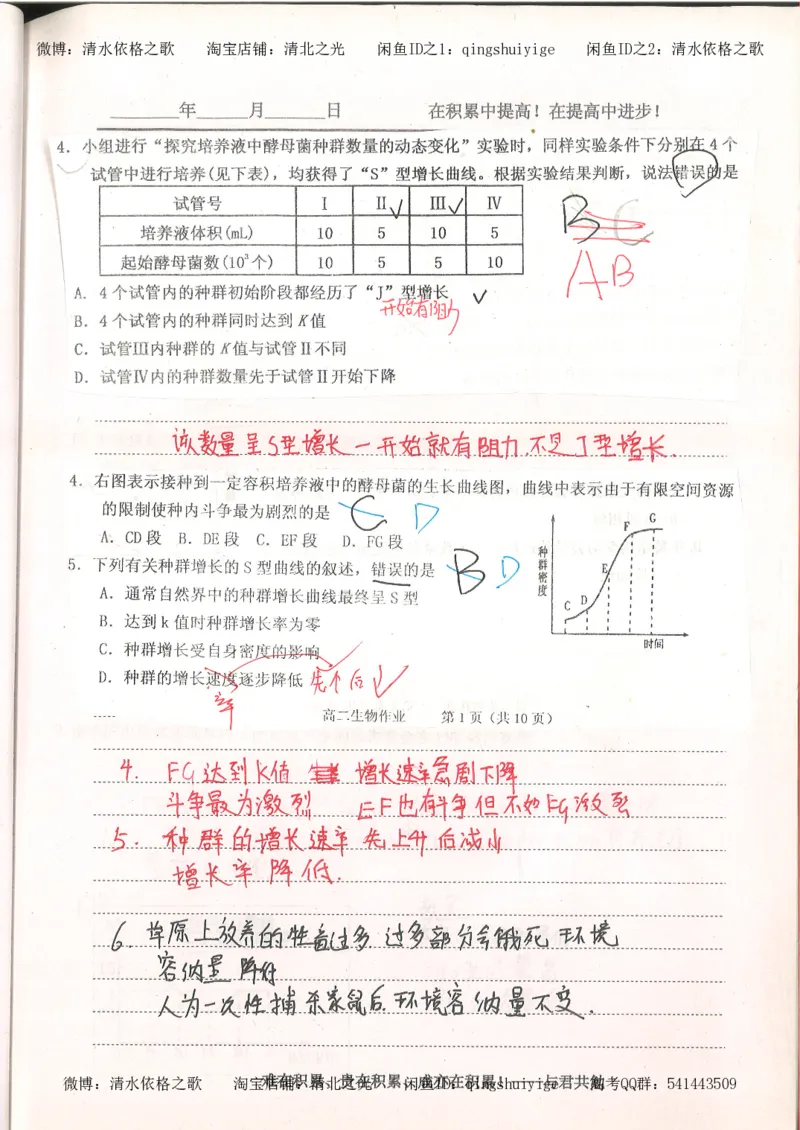 微博：清水依格之歌 淘宝店铺：清北之光 闲鱼ID之1：qingshuiyige 闲鱼ID之2：清水依格之歌
年 月 日 在积累中提高！在提高中进步！
4．小组进行“探究培养液中酵母菌种群数量的动态变化”实验时，同样实验条件下分别在4个
试管中进行培养(见下表)，均获得了“S”型增长曲线。根据实验结果判断，说法错误的是
试管号 Ⅰ Ⅱ Ⅲ Ⅳ
培养液体积(mL) 10 5 10 5
起始酵母菌数(10³个) 10 5 5 10
B C
AB
A．4个试管内的种群初始阶段都经历了“J”型增长
开始有阻力
B．4个试管内的种群同时达到K值
C．试管Ⅲ内种群的K值与试管Ⅱ不同
D．试管Ⅳ内的种群数量先于试管Ⅱ开始下降
该数量呈S型增长一开始就有阻力不是J型增长．
4．右图表示接种到一定容积培养液中的酵母菌的生长曲线图，曲线中表示由于有限空间资源
的限制使种内斗争最为剧烈的是 C D
A．CD段 B．DE段 C．EF段 D．FG段
5．下列有关种群增长的S型曲线的叙述，错误的是 B D
A．通常自然界中的种群增长曲线最终呈S型
B．达到k值时种群增长率为零
C．种群增长受自身密度的影响
D．种群的增长速度逐步降低 先个后
率
种群密度
C D E F G
时间
高二生物作业 第1页（共10页）
4. FG达到K值 增长速率急剧下降
斗争最为激烈 EF也有斗争但不如FG激烈
5. 种群的增长速率先上升后减小
增长率降低．
6. 草原上放养的牲畜过多 过多部分会饿死 环境
容纳量降低
人为一次性捕杀家鼠后环境容纳量不变．
微博：清水依格之歌 淘宝店铺：清北之光 闲鱼ID：qingshuiyige 高考QQ群：541443509
难在积累，贵在积累，成亦在积累！——与君共勉